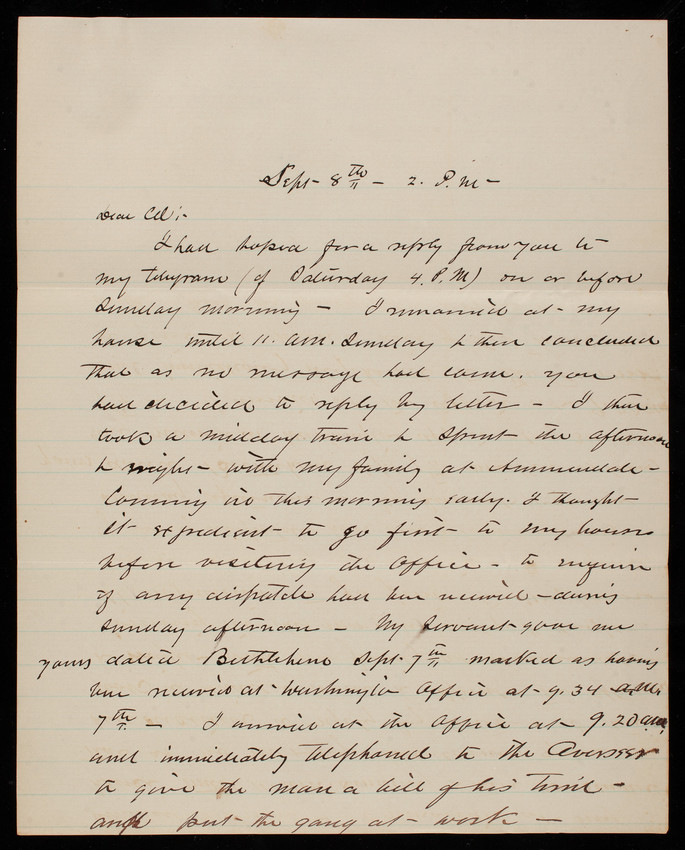 Sept 8th - 2. P.M -
Dear Col:-
I had hoped for a reply from you to
my telegram (of Saturday 4. P.M) on or before
Sunday morning - I remained at my
house until 11. am. Sunday & then concluded
that as no message had come. you
had decided to reply by letter - I then
took a midday train & spent the afternoon
& night - with my family at Ammendale -
Coming in this morning early. I thought
it expedient to go first to my house
before visiting the Office - to inquire
if any dispatch had been received - during
Sunday afternoon - My Servant gave me
yours dated Bethlehem Sept 7th marked as having
been received at Washington Office at 9.34 a.m.
7th - I arrived at the Office at 9.20 a.m.
and immediately telephoned to the Overseer
to give the man a bill of his time -
and put the gang at work -